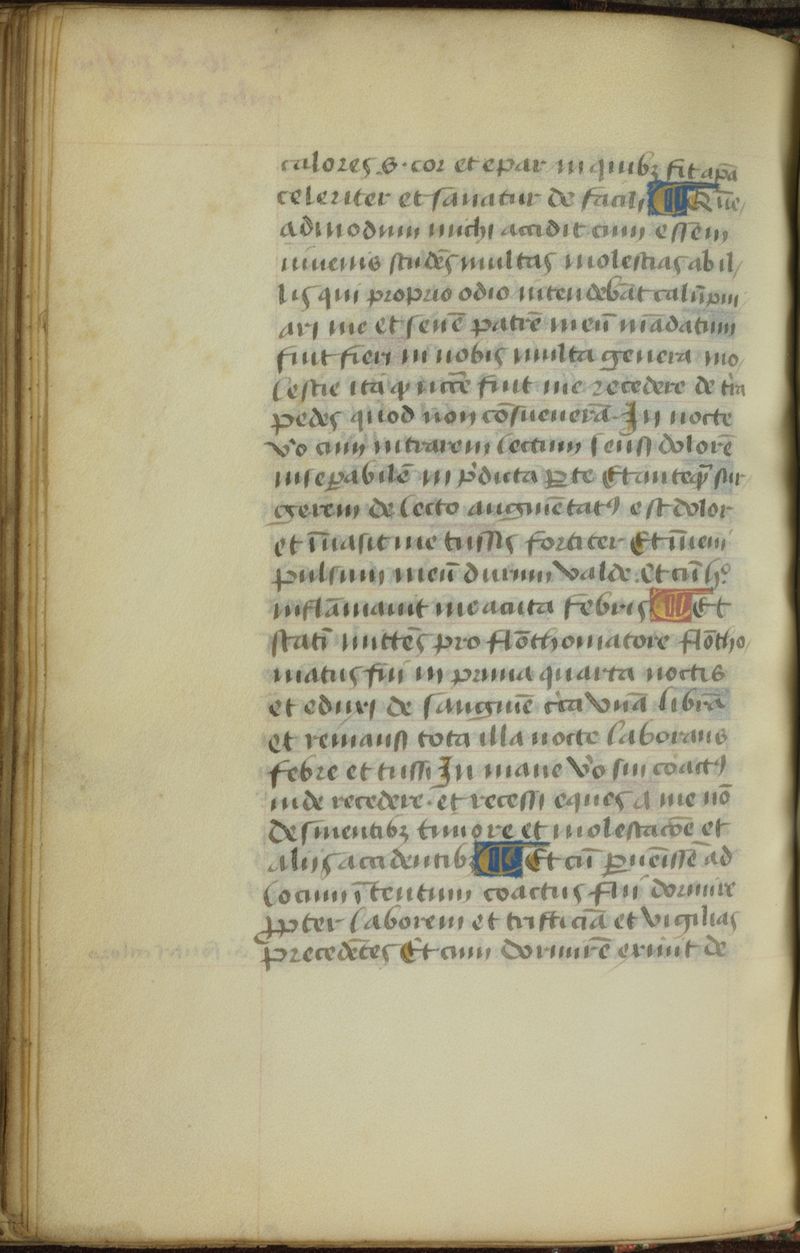 calores .s. cor et epar in quibꝫ fit apa̅
celeriter et sanatur de facili Que̅
admodum michi accidit cum essem
iuuenis stude̅s multas molestias ab il
lis qui proprio odio intendeba̅t calu̅pni
ari me et sene̅ patre̅ meu̅ ma̅datum
fuit fieri in nobis multa genera mo
lestie ita ꝙ fuit me recedere de
pedes quod non co̅sueuera̅ In nocte
vo cum intrarem lectum sensi dolore̅
in p̓dicta ꝑte Et anteq̅ sur
gerem de lecto augme̅tatꝰ est dolor
et i̅uasit me tussis fortiter Et i̅ueni
pulsum meu̅ durum valde . Et cu̅ hͦ
infla̅mauit me acuta febris Et
stati̅ mitte̅s pro flo̅thomatore flo̅tho
matus fui in prima quarta noctis
et eduxi de sanguine̅ vna̅ libra̅
et remansi tota illa nocte laborans
febre et tussi In mane vo fui coactꝰ
inde recedere . et recessi eques a me no̅
desinentibꝫ timore et molestac̅o̅e et
aliis accidentibꝫ Et cu̅ ꝑueni̅sse̅ ad
locum i̅tentum coactus fui dormire
ꝓpter laborem et tristicia̅ et vigilias
precede̅tes Et cum dormire̅ exiuit de